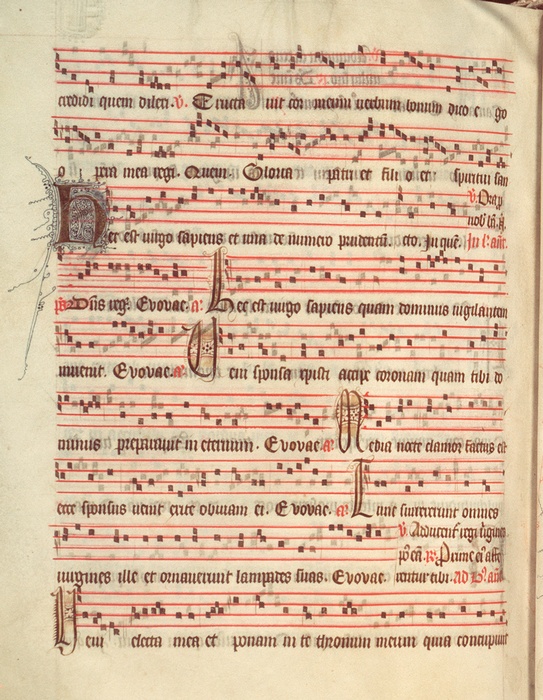 credidi quem dilexi. v. Eructa uit cor meum uerbum bonum dico e go
o pera mea regi. Quem. Gloria patri et fili o et spiritui san
v. Ora p
nob b̄a. A.
Hec est uirgo sapiens et una de numero prudentū. cto. In quē. In l. añ.
ps. Dñs reg. Evovae. a. Hec est uirgo sapiens quam dominus uigilantem
inuenit. Evovae. a. Veni sponsa xpisti accipe coronam quam tibi do
minus preparauit in eternum. Evovae. a. Media nocte clamor factus est
ecce sponsus uenit exite obuiam ei. Evovae. a. Tunc surrexerunt omnes
v. Aducent regi uīgines
po eā. R. Proxime ei affe
uirgines ille et ornauerunt lampades suas. Evovae. rentur tibi. Ad B. añ
Veni electa mea et ponam in te thronum meum quia concupiuit